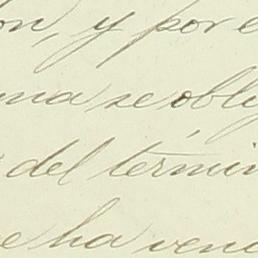 ón, y por e
una se obliga
del términ
se ha venc